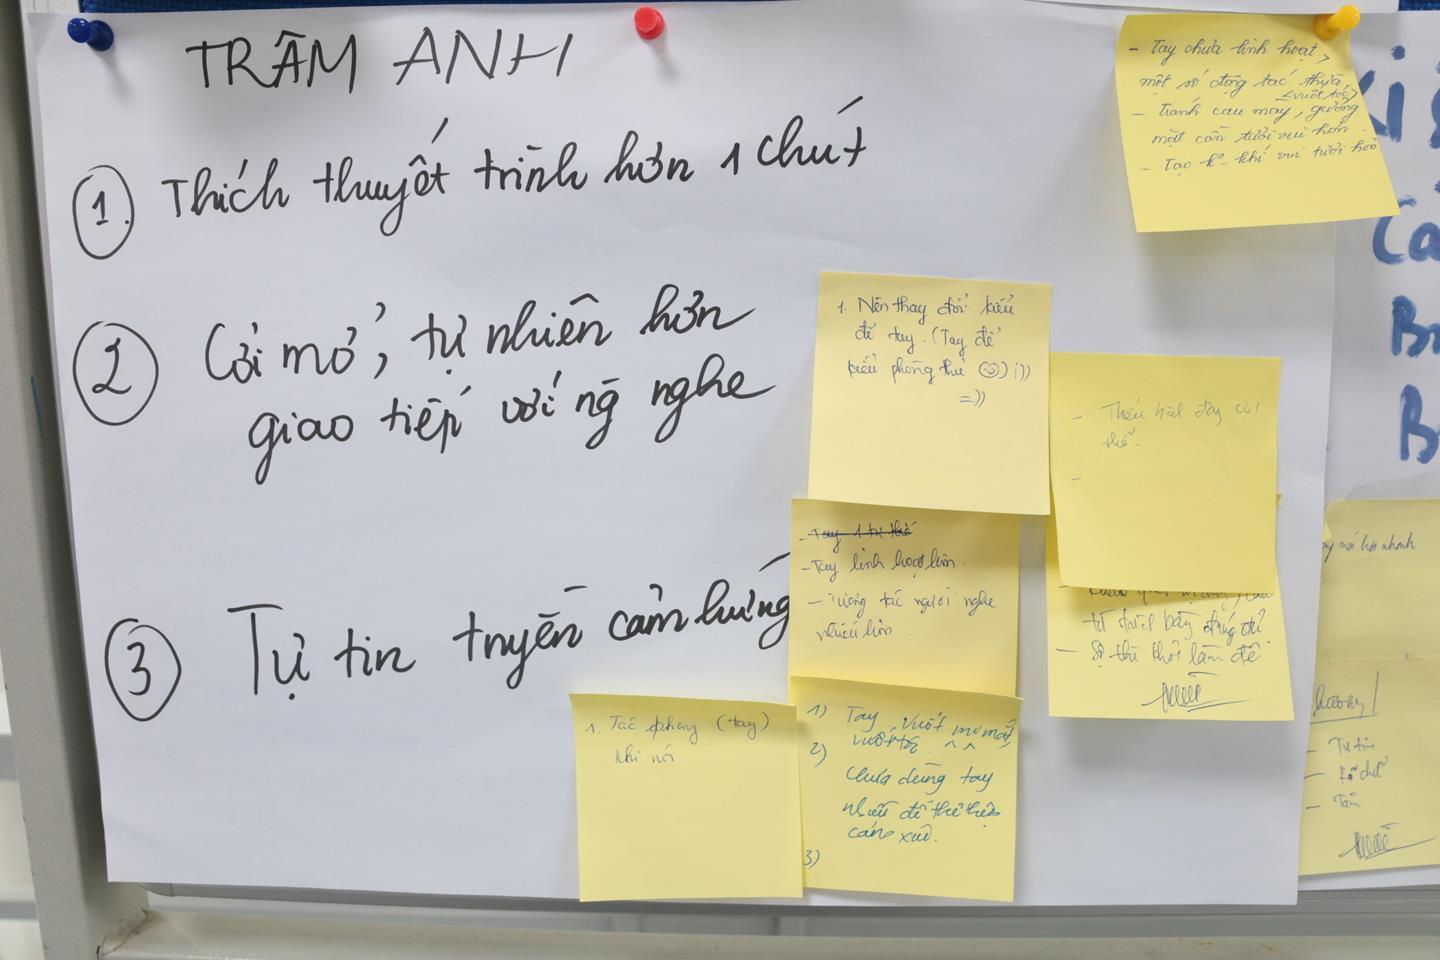 TRÂM ANH
1. Thích thuyết trình hơn 1 chút
2 Cởi mở, tự nhiên hơn
giao tiếp với ng̃ nghe
3 Tự tin truyền cảm hứng
- Tay chưa linh hoạt,
một số động tác thừa
(vuốt tóc)
- Tránh cau mày, gương
mặt cần tươi vui hơn.
- Tạo k° khí vui tươi hơn
1. Nên thay đổi kiểu
để tay. (Tay để
kiểu phòng thủ ☺) :))
=))
- Thiếu hình
thể.
-
- Tay 1 tư thế
- Tay linh hoạt hơn.
- Tương tác người nghe
nhiều hơn.
từ
-
1. Tác phong (tay)
khi nói
1) Tay vuốt
vuốt tóc. ^ ^
2)
Chưa dùng tay
nhiều để thể hiện
cảm xúc.
3)
- Tự tin
-
- Tâm
Ca
B
B